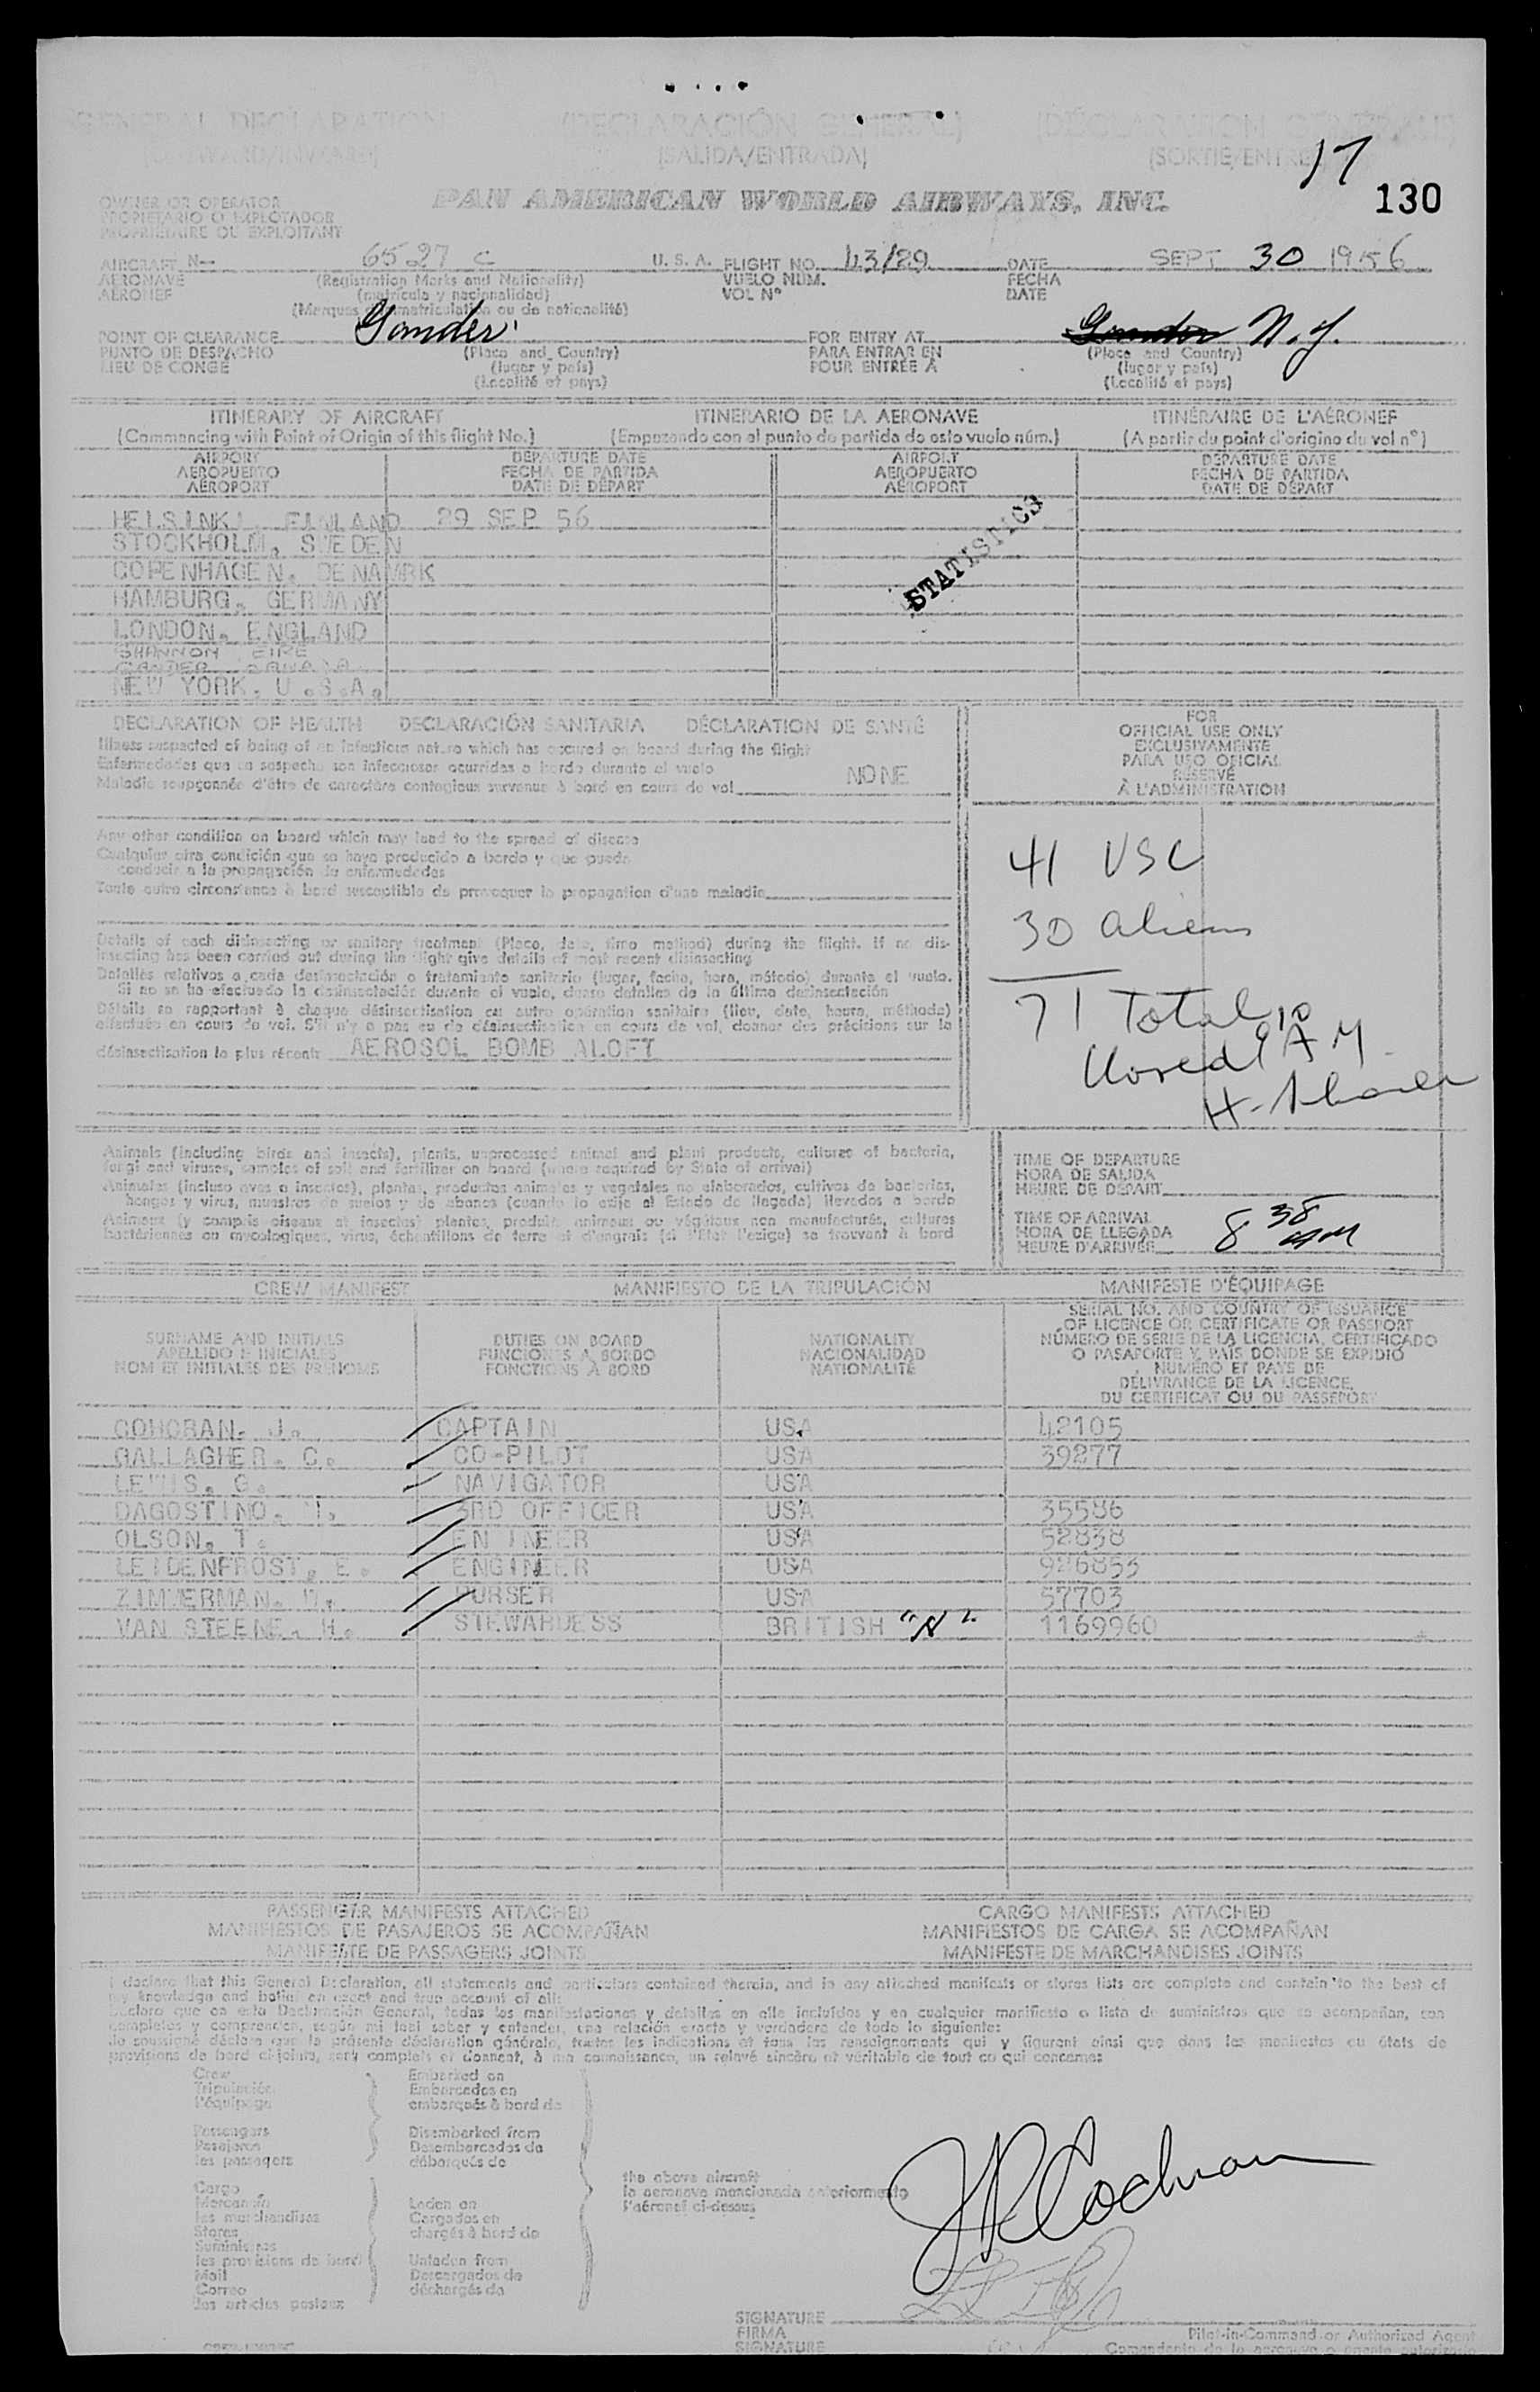 GENERAL DECLARATION (DECLARACIÓN GENERAL) (DÉCLARATION GENERALE)
(OUTWARD/INWARD) (SALIDA/ENTRADA) (SORTIE/ENTREE)
17
130
OWNER OR OPERATOR
PROPIETARIO O EXPLOTADOR
PROPRIÉTAIRE OU EXPLOITANT
PAN AMERICAN WORLD AIRWAYS, INC.
AIRCRAFT N— 6527 C U. S. A. FLIGHT NO. 43/29 DATE SEPT 30 1956
AERONAVE (Registration Marks and Nationality) VUELO NUM. FECHA
AERONEF (matrícula y nacionalidad) VOL Nº DATE
(Marques d'immatriculation ou de nationalité)
POINT OF CLEARANCE Gander FOR ENTRY AT Gander N.Y.
PUNTO DE DESPACHO (Place and Country) PARA ENTRAR EN (Place and Country)
LIEU DE CONGE (lugar y país) POUR ENTRÉE À (lugar y país)
(Localité et pays) (Localité et pays)
ITINERARY OF AIRCRAFT ITINERARIO DE LA AERONAVE ITINÉRAIRE DE L'AÉRONEF
(Commencing with Point of Origin of this flight No.) (Empezando con el punto de partida de este vuelo núm.) (A partir du point d'origine du vol nº)
AIRPORT DEPARTURE DATE AIRPORT DEPARTURE DATE
AEROPUERTO FECHA DE PARTIDA AEROPUERTO FECHA DE PARTIDA
AÉROPORT DATE DE DÉPART AÉROPORT DATE DE DÉPART
HELSINKI, FINLAND 29 SEP 56
STOCKHOLM, SWEDEN
COPENHAGEN, DENAMRK
HAMBURG, GERMANY
LONDON, ENGLAND
SHANNON EIRE
GANDER CANADA
NEW YORK, U.S.A.
STATISTICS
DECLARATION OF HEALTH DECLARACIÓN SANITARIA DÉCLARATION DE SANTÉ
Illness suspected of being of an infectious nature which has occured on board during the flight
Enfermedades que se sospecha son infecciosas ocurridas a bordo durante el vuelo
Maladie soupçonnée d'être de caractère contagieux survenue à bord en cours de vol NONE
Any other condition on board which may lead to the spread of disease
Cualquier otra condición que se haya producido a bordo y que pueda
conducir a la propagación de enfermedades
Toute autre circonstance à bord susceptible de provoquer la propagation d'une maladie
Details of each disinsecting or sanitary treatment (Place, date, time method) during the flight. If no dis-
insecting has been carried out during the flight give details of most recent disinsecting
Detalles relativos a cada desinsectación o tratamiento sanitario (lugar, fecha, hora, método) durante el vuelo.
Si no se ha efectuado la desinsectación durante el vuelo, dense detalles de la última desinsectación
Détails se rapportant à chaque désinsectisation ou autre opération sanitaire (lieu, date, heure, méthode)
effectuée en cours de vol. S'il n'y a pas eu de désinsectisation en cours de vol, donner des précisions sur la
désinsectisation la plus récente AEROSOL BOMB ALOFT
FOR
OFFICIAL USE ONLY
EXCLUSIVAMENTE
PARA USO OFICIAL
RÉSERVÉ
À L'ADMINISTRATION
41 USC
30 aliens
71 Total
10
AM
Animals (including birds and insects), plants, unprocessed animal and plant products, cultures of bacteria,
fungi and viruses, samples of soil and fertilizer on board (where required by State of arrival)
Animales (incluso aves e insectos), plantas, productos animales y vegetales no elaborados, cultivos de bacterias,
hongos y virus, muestras de suelos y de abonos (cuando lo exije el Estado de llegada) llevados a bordo
Animaux (y compris oiseaux et insectes) plantes, produits animaux ou végétaux non manufacturés, cultures
bactériennes ou mycologiques, virus, échantillons de terre et d'engrais (si l'Etat l'exige) se trouvant à bord
TIME OF DEPARTURE
HORA DE SALIDA
HEURE DE DÉPART
TIME OF ARRIVAL
HORA DE LLEGADA
HEURE D'ARRIVÉE 8 38 AM
CREW MANIFEST MANIFIESTO DE LA TRIPULACIÓN MANIFESTE D'ÉQUIPAGE
SURNAME AND INITIALS
APELLIDO E INICIALES
NOM ET INITIALES DES PRÉNOMS
DUTIES ON BOARD
FUNCIONES A BORDO
FONCTIONS À BORD
NATIONALITY
NACIONALIDAD
NATIONALITÉ
SERIAL NO. AND COUNTRY OF ISSUANCE
OF LICENCE OR CERTIFICATE OR PASSPORT
NÚMERO DE SERIE DE LA LICENCIA, CERTIFICADO
O PASAPORTE Y PAÍS DONDE SE EXPIDIÓ
NUMÉRO ET PAYS DE
DÉLIVRANCE DE LA LICENCE,
DU CERTIFICAT OU DU PASSEPORT
COHCRAN, J. CAPTAIN USA 42105
GALLAGHER, C. CO-PILOT USA 39277
LEWIS, G. NAVIGATOR USA
DAGOSTINO, 3RD OFFICER USA 35586
OLSON, T. EN INEER USA 52838
LEIDENFROST, E. ENGINEER USA 926853
ZIMMERMAN, PURSER USA 57703
VAN STEENE, H. STEWARDESS BRITISH "N" 1169960
PASSENGER MANIFESTS ATTACHED CARGO MANIFESTS ATTACHED
MANIFIESTOS DE PASAJEROS SE ACOMPAÑAN MANIFIESTOS DE CARGA SE ACOMPAÑAN
MANIFESTE DE PASSAGERS JOINTS MANIFESTE DE MARCHANDISES JOINTS
I declare that this General Declaration, all statements and particulars contained therein, and in any attached manifests or stores lists are complete and contain to the best of
my knowledge and belief an exact and true account of all:
Declaro que en esta Declaración General, todas las manifestaciones y detalles en ella incluídos y en cualquier manifiesto o lista de suministros que se acompañan, son
completos y comprenden, según mi leal saber y entender, una relación exacta y verdadera de todo lo siguiente:
Je soussigné déclare que la présente déclaration générale, toutes les indications et tous les renseignements qui y figurent ainsi que dans les manifestes ou états de
provisions de bord ci-joints, sont complets et donnent, à ma connaissance, un relevé sincère et véritable de tout ce qui concerne:
Crew Embarked on
Tripulación Embarcados en
l'équipage embarqués à bord de
Passengers Disembarked from
Pasajeros Desembarcados de
les passagers débarqués de
Cargo
Mercancía Laden on
les marchandises Cargados en
Stores chargés à bord de
Suministros
les provisions de bord Unladen from
Mail Descargados de
Correo déchargés de
les articles postaux
the above aircraft
la aeronave mencionada anteriormente
l'aéronef ci-dessus
JR Cochran
SIGNATURE
FIRMA Pilot-in-Command or Authorized Agent
SIGNATURE Comandante de la aeronave o agente autorizado